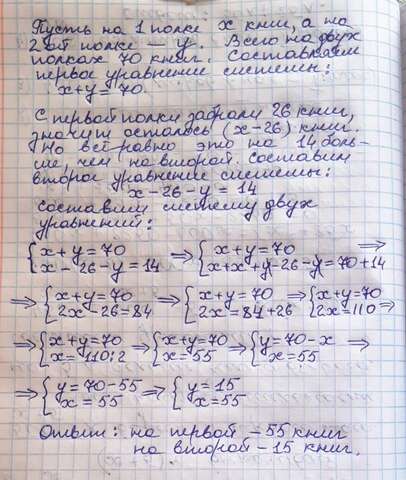 Пусть на 1 полке x книг, а на
2-ой полке — y. Всего на двух
полках 70 книг. Составляем
первое уравнение системы:
x+y=70.
С первой полки забрали 26 книг,
значит осталось (x-26) книг.
Но всё равно это на 14 боль-
ше, чем на второй. Составим
второе уравнение системы:
x-26-y=14
Составим систему двух
уравнений:
{x+y=70 ⇒ {x+y=70 ⇒
{x-26-y=14 {x+x+y-26-y=70+14
⇒ {x+y=70 ⇒ {x+y=70 ⇒ {x+y=70
{2x-26=84 {2x=84+26 {2x=110 ⇒
⇒ {x+y=70 ⇒ {x+y=70 ⇒ {y=70-x ⇒
{x=110:2 {x=55 {x=55
⇒ {y=70-55 ⇒ {y=15
{x=55 {x=55
Ответ: на первой - 55 книг
на второй - 15 книг.